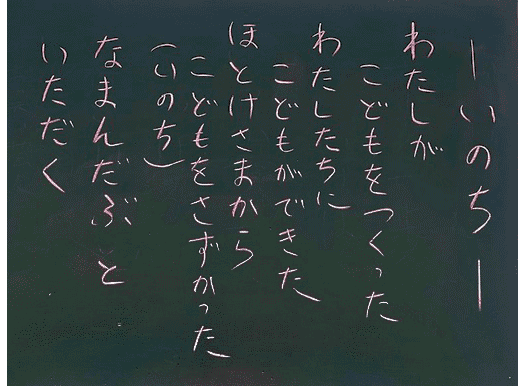 ―いのち―
わたしが
こどもをつくった
わたしたちに
こどもができた
ほとけさまから
こどもをさずかった
(いのち)
なまんだぶと
いただく